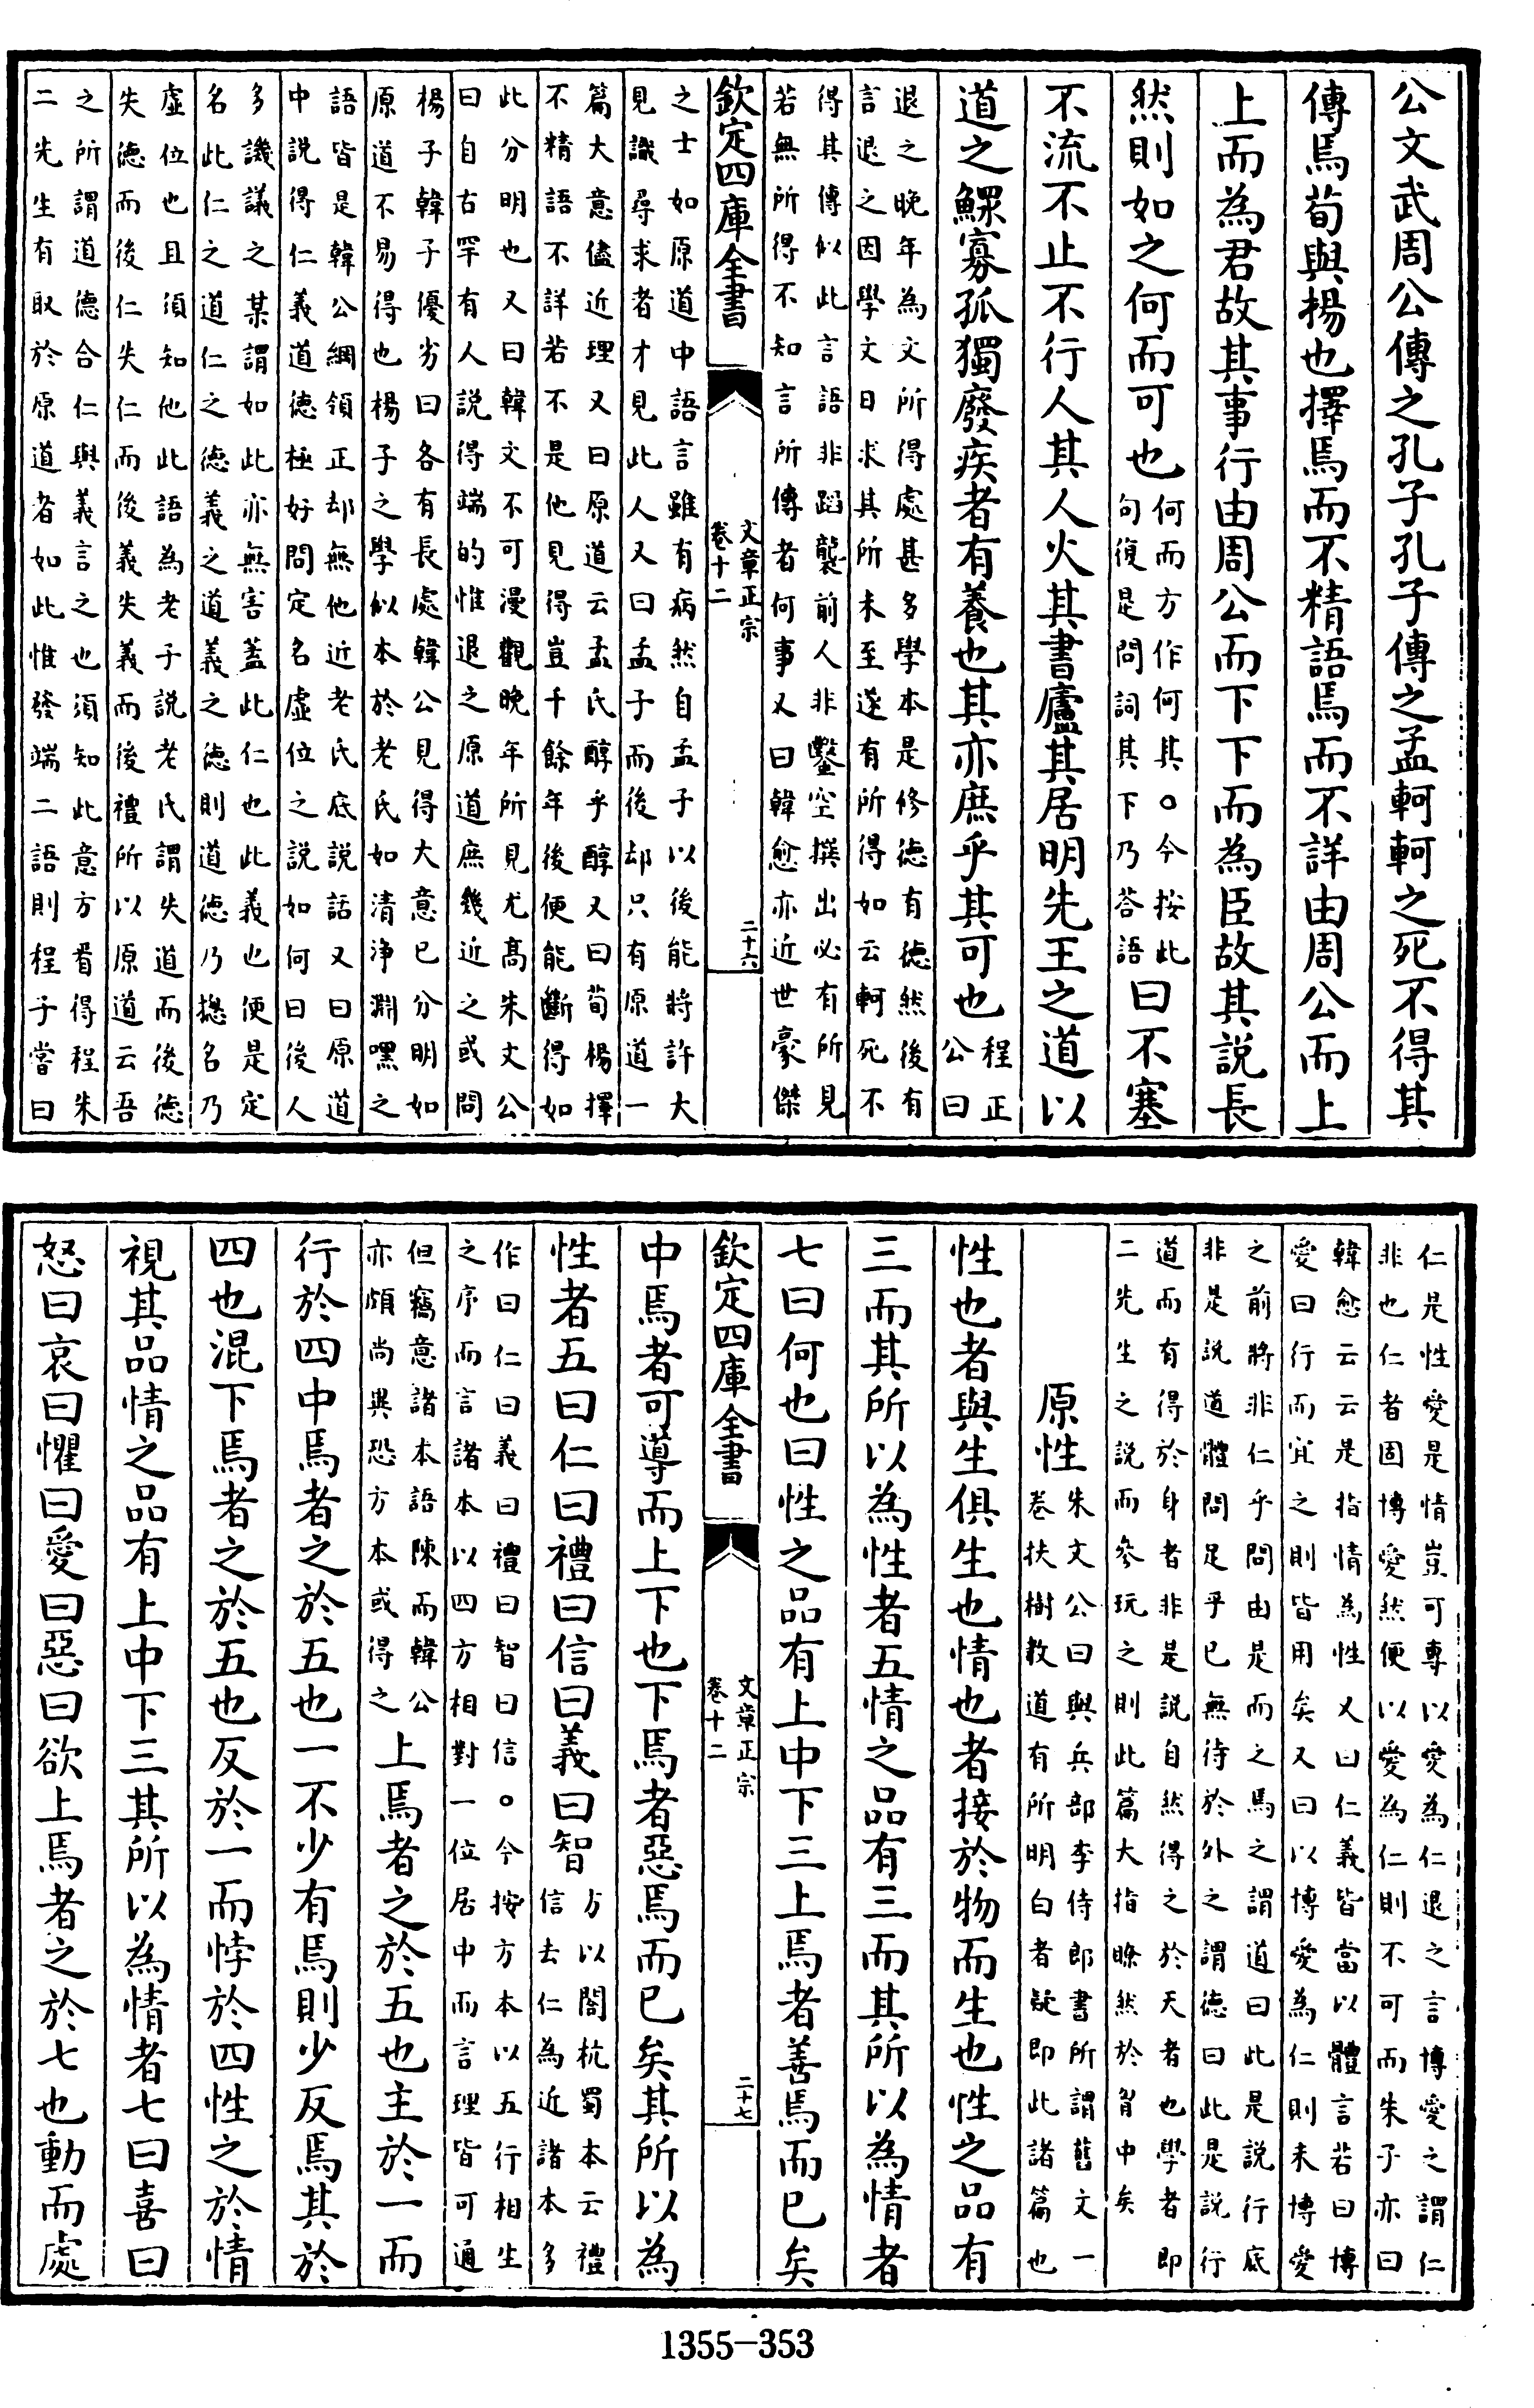 公文武周公傳之孔子孔子傳之孟軻軻之死不得其
傳焉荀與揚也擇焉而不精語焉而不詳由周公而上
上而為君故其事行由周公而下下而為臣故其說長
然則如之何而可也何而方作何其○今按此
句復是問詞其下乃答語曰不塞
不流不止不行人其人火其書廬其居明先王之道以
道之鰥寡孤獨廢疾者有養也其亦庶乎其可也程正
公曰
退之晚年為文所得處甚多學本是修德有德然後有
言退之因學文日求其所未至遂有所得如云軻死不
得其傳似此言語非蹈襲前人非鑿空撰出必有所見
若無所得不知言所傳者何事又曰韓愈亦近世豪傑
欽定四庫全書
文章正宗
卷十二
二十六
之士如原道中語言雖有病然自孟子以後能將許大
見識尋求者才見此人又曰孟子而後却只有原道一
篇大意儘近理又曰原道云孟氏醇乎醇又曰荀楊擇
不精語不詳若不是他見得豈千餘年後便能斷得如
此分明也又曰韓文不可漫觀晚年所見尤髙朱文公
曰自古罕有人說得端的惟退之原道庶幾近之或問
楊子韓子優劣曰各有長處韓公見得大意已分明如
原道不易得也楊子之學似本於老氏如清淨淵嘿之
語皆是韓公綱領正却無他近老氏底說話又曰原道
中說得仁義道德極好問定名虛位之說如何曰後人
多譏議之某謂如此亦無害蓋此仁也此義也便是定
名此仁之道仁之德義之道義之德則道德乃摠名乃
虛位也且須知他此語為老子說老氏謂失道而後德
失德而後仁失仁而後義失義而後禮所以原道云吾
之所謂道德合仁與義言之也須知此意方看得程朱
二先生有取於原道者如此惟發端二語則程子嘗曰
仁是性愛是情豈可專以愛為仁退之言博愛之謂仁
非也仁者固博愛然便以愛為仁則不可而朱子亦曰
韓愈云云是指情為性又曰仁義皆當以體言若曰博
愛曰行而宜之則皆用矣又曰以博愛為仁則未博愛
之前將非仁乎問由是而之焉之謂道曰此是說行底
非是說道體問足乎已無待於外之謂德曰此是說行
道而有得於身者非是說自然得之於天者也學者即
二先生之說而參玩之則此篇大指瞭然於胷中矣
原性朱文公曰與兵部李侍郎書所謂舊文一
卷扶樹教道有所明白者疑即此諸篇也
性也者與生俱生也情也者接於物而生也性之品有
三而其所以為性者五情之品有三而其所以為情者
七曰何也曰性之品有上中下三上焉者善焉而已矣
欽定四庫全書
文章正宗
卷十二
二十七
中焉者可導而上下也下焉者惡焉而已矣其所以為
性者五曰仁曰禮曰信曰義曰智方以閣杭蜀本云禮
信去仁為近諸本多
作曰仁曰義曰禮曰智曰信○今按方本以五行相生
之序而言諸本以四方相對一位居中而言理皆可通
但竊意諸本語陳而韓公
亦頗尚異恐方本或得之上焉者之於五也主於一而
行於四中焉者之於五也一不少有焉則少反焉其於
四也混下焉者之於五也反於一而悖於四性之於情
視其品情之品有上中下三其所以為情者七曰喜曰
怒曰哀曰懼曰愛曰惡曰欲上焉者之於七也動而處
1355-353